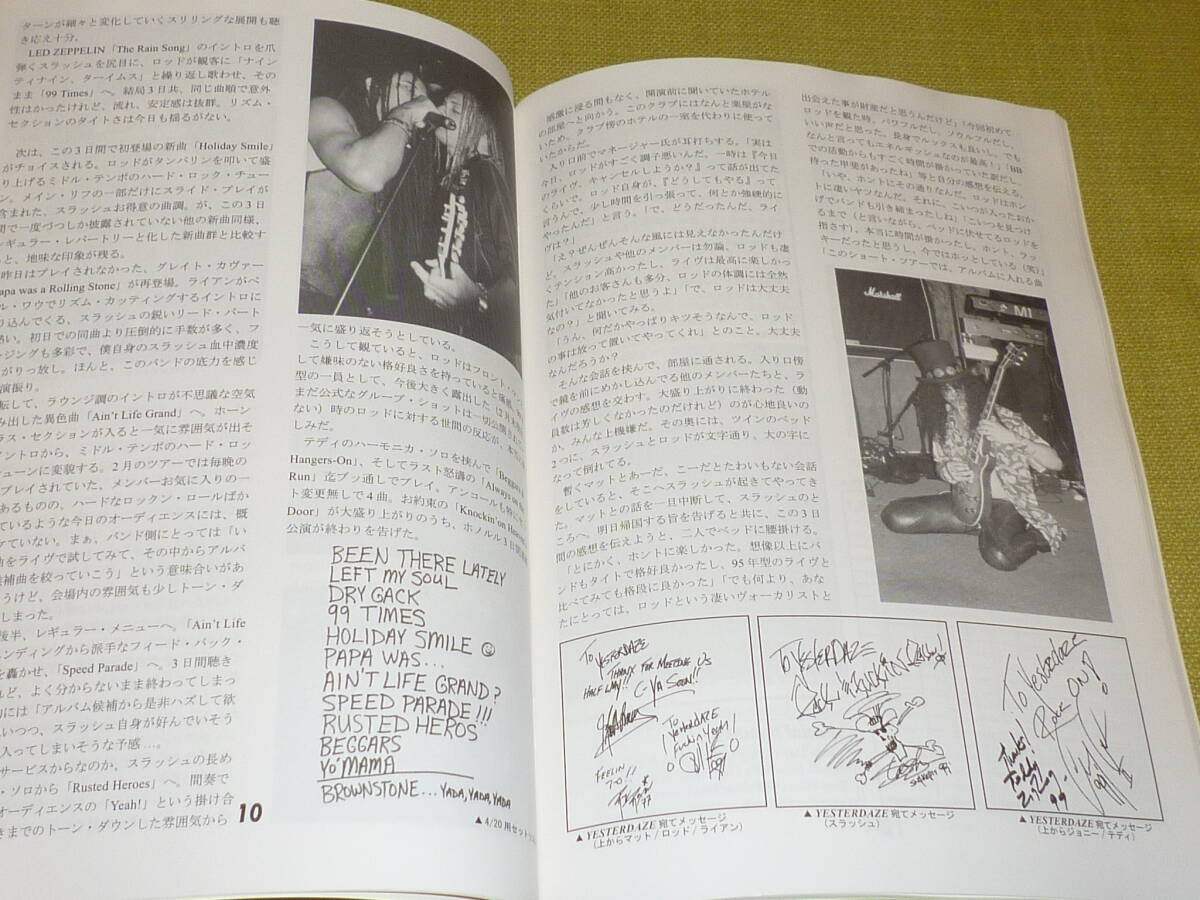 ターンが細々と変化していくスリリングな展開も聴
き応え十分。
LED ZEPPELIN「The Rain Song」のイントロを爪
弾くスラッシュを尻目に、ロッドが観客に「ナイン
ティナイン、ターイムス」と繰り返し歌わせ、その
まま「99 Times」へ。結局3日共、同じ曲順で意外
性はかったけれど、流れ、安定感は抜群。リズム・
セクションのタイトさは今日も揺るがない。
次は、この3日間で初登場の新曲「Holiday Smile」
がチョイスされる。ロッドがタンバリンを叩いて盛
り上げるミドル・テンポのハード・ロック・チュー
ン。メイン・リフの一部だけにスライド・プレイが
含まれた、スラッシュお得意の曲調。が、この3日
間で一度づつしか披露されていない他の新曲同様、
ギュラー・レパートリーと化した新曲群と比較す
と、地味な印象が残る。
昨日はプレイされなかった、グレイト・カヴァー
apa was a Rolling Stone」が再登場。ライアンがベ
ル・ワウでリズム・カッティングするイントロに
り込んでくる、スラッシュの鋭いリード・パート
い。初日での同曲より圧倒的に手数が多く、フ
ージングも多彩で、僕自身のスラッシュ血中濃度
がりっ放し。ほんと、このバンドの底力を感じ
演振り。
転して、ラウンジ調のイントロが不思議な空気
み出した異色曲「Ain't Life Grand」へ。ホーン
ラス・セクションが入ると一気に雰囲気が出そ
イントロから、ミドル・テンポのハード・ロッ
ューンに変貌する。2月のツアーでは毎晩の
プレイされていた、メンバーお気に入りの一
あるものの、ハードなロックン・ロールばか
ているような今日のオーディエンスには、概
ケていない。まぁ、バンド側にとっては「い
曲をライヴで試してみて、その中からアルバ
候補曲を絞っていこう」という意味合いがあ
うけど、会場内の雰囲気も少しトーン・ダ
しまった。
後半、レギュラー・メニューへ。「Ain't Life
ンディングから派手なフィード・バック・
を轟かせ、「Speed Parade」へ。3日間聴き
れど、よく分からないまま終わってしまっ
的には「アルバム候補から是非ハズして欲
いつつ、スラッシュ自身が好んでいそう
入ってしまいそうな予感…。
サービスからなのか、スラッシュの長め
・ソロから「Rusted Heroes」へ。間奏で
オーディエンスの「Yeah!」という掛け合
きまでのトーン・ダウンした雰囲気から
10
一気に盛り返そうとしている。
こうして観ていると、ロッドはフロント・
して嫌味のない格好良さを持っていると
型の一員として、今後大きく露出した（2月
まだ公式なグループ・ショットは一切公開
ない）時のロッドに対する世間の反応が、
しみだ。
テディのハーモニカ・ソロを挟んで「Beggers &
Hangers-On」、そしてラスト怒濤の「Always on the
Run」迄ブッ通しでプレイ。アンコールも
ト変更無しで4曲。お約束の「Knockin' on Heaven
Door」が大盛り上がりのうち、ホノルル3日
公演が終わりを告げた。
BEEN THERE LATELY
LEFT MY SOUL
DRY GACK
99 TIMES
HOLIDAY SMILE
PAPA WAS...
AIN'T LIFE GRAND?
SPEED PARADE!!!
RUSTED HEROS
BEGGARS
YO' MAMA
BROWNSTONE...YADA, YADA, YADA
▲4/20用セット
感激に浸る間もなく、開演前に聞いていたホテル
の部屋へと向かう。このクラブにはなんと楽屋がな
いため、クラブ傍のホテルの一室を代わりに使って
いたからだ。
入り口前でマネージャー氏が耳打ちする。「実は
今日、ロッドがすごく調子悪いんだ。一時は『今日
のライヴ、キャンセルしようか？』って話が出てた
くらいで。ロッド自身が、『どうしてもやる』って
言うんで、少し時間を引っ張って、何とか強硬的に
やったんだ」と言う。「で、どうだったんだ、ライ
ヴは？」
「え？ぜんぜんそんな風には見えなかったんだけ
ど、スラッシュや他のメンバーは勿論、ロッドも凄
くテンション高かったし、ライヴは最高に楽しかっ
た」「他のお客さんも多分、ロッドの体調には全然
気付いてなかったと思うよ」「で、ロッドは大丈夫
なの？」と聞いてみる。
「うん、何だかやっぱりキツそうなんで、ロッド
の事は放って置いてやってくれ」とのこと。大丈夫
なんだろうか？
そんな会話を挟んで、部屋に通される。入り口傍
で鏡を前にめかし込んでる他のメンバーたちと、ラ
イヴの感想を交わす。大盛り上がりに終わった（動
員数は芳しくなかったのだけれど）のが心地良いの
か、みんな上機嫌だ。その奥には、ツインのベッド
2つに、スラッシュとロッドが文字通り、大の字に
なって倒れてる。
暫くマットとあーだ、こーだとたわいもない会話
をしていると、そこへスラッシュが起きてやってき
た。マットとの話を一旦中断して、スラッシュのと
ころへ。明日帰国する旨を告げると共に、この3日
間の感想を伝えようと、二人でベッドに腰掛ける。
「とにかく、ホントに楽しかった。想像以上にバ
ンドもタイトで格好良かったし、95年型のライヴと
比べてみても格段に良かった」「でも何より、あな
たにとっては、ロッドという凄いヴォーカリストと
出会えた事が財産だと思うんだけど」「今回初めて
ロッドを観た時、パワフルだし、ソウルフルだし、
いい声だと思った。長身でルックスも良いし、でも
なんと言ってもエネルギッシュなのが最高！」「BB
での活動からもすごく時間が掛かっていた訳だし、
持った甲斐があったね」等と自分の感想を伝える。
「いや、ホントにその通りなんだ。ロッドはホン
トに凄いヤツなんだ。それに、こいつが入ったおか
げでバンドも引き締まったしね」「こいつを見つけ
るまで（と言いながら、ベッドに伏せてるロッドを
指さす）、本当に時間が掛かったし、ホント、ラッ
キーだったと思うし、今ではホッとしている（笑）」
「このショート・ツアーでは、アルバムに入れる曲
Marshall
TO YESTERDAZE
THANX FOR MEETING US
HALF WAY!! C-YA SOON!!
TO YESTERDAZE
Fuckin Yeah!
FEELIN
TO YESTERDAZE
To Yesterdaze
Rock ON!
Thanks!
Teddy
Zig Zag
99
▲YESTERDAZE宛てメッセージ
（上からマット / ロッド / ライアン）
▲YESTERDAZE宛てメッセージ
（スラッシュ）
▲YESTERDAZE宛てメッセージ
（上からジョニー / テディ）